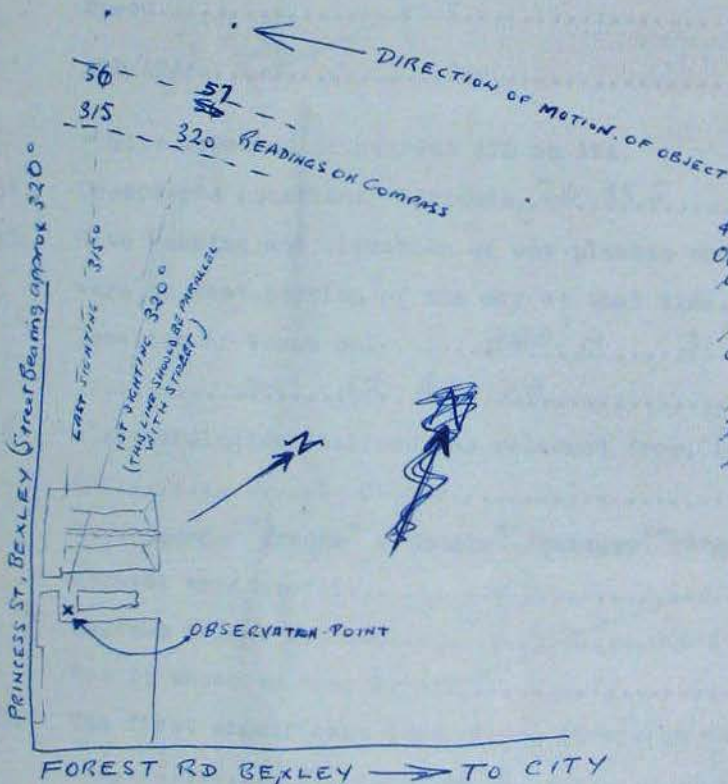 DIRECTION OF MOTION OF OBJECT
56 57
315 320 READINGS ON COMPASS
PRINCESS ST, BEXLEY (Street Bearing approx 320°
LAST SIGHTING 315°
1ST SIGHTING 320°
(THIS LINE SHOULD BE PARALLEL
WITH STREET)
N
OBSERVATION POINT
FOREST RD BEXLEY → TO CITY